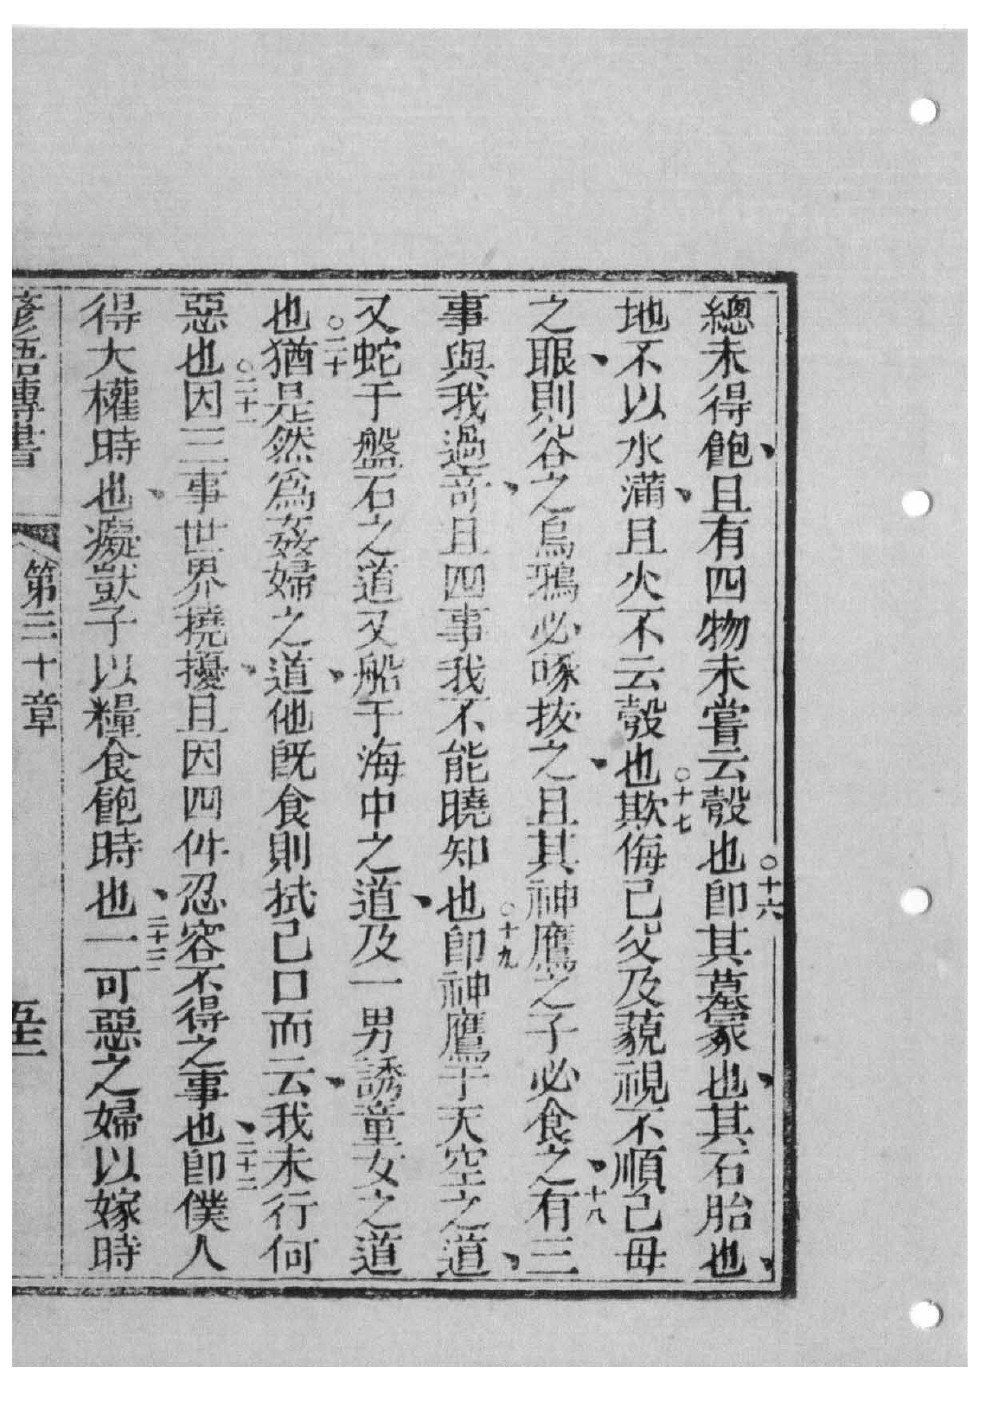 總未得飽、且有四物未嘗云彀也○十六卽其墓冡也、其石胎也、
地不以水滿、且火不云彀也○十七欺侮己父及藐視不順己母
之眼、則谷之烏鴉必啄抜之、且其神鷹之子必食之、十八有三
事與我過竒、且四事我不能曉知也○十九卽神鷹于天空之道、
又蛇于盤石之道又船于海中之道、及一男誘童女之道
○二十也猶是然爲姦婦之道、他既食則拭己口而云、我未行何
惡也○二十一因三事世界撓擾、且因四件忍容不得之事也、二十二卽僕人
得大權時也、癡獃子以糧食飽時也、二十三一可惡之婦以嫁時
諺語傳書 第三十章